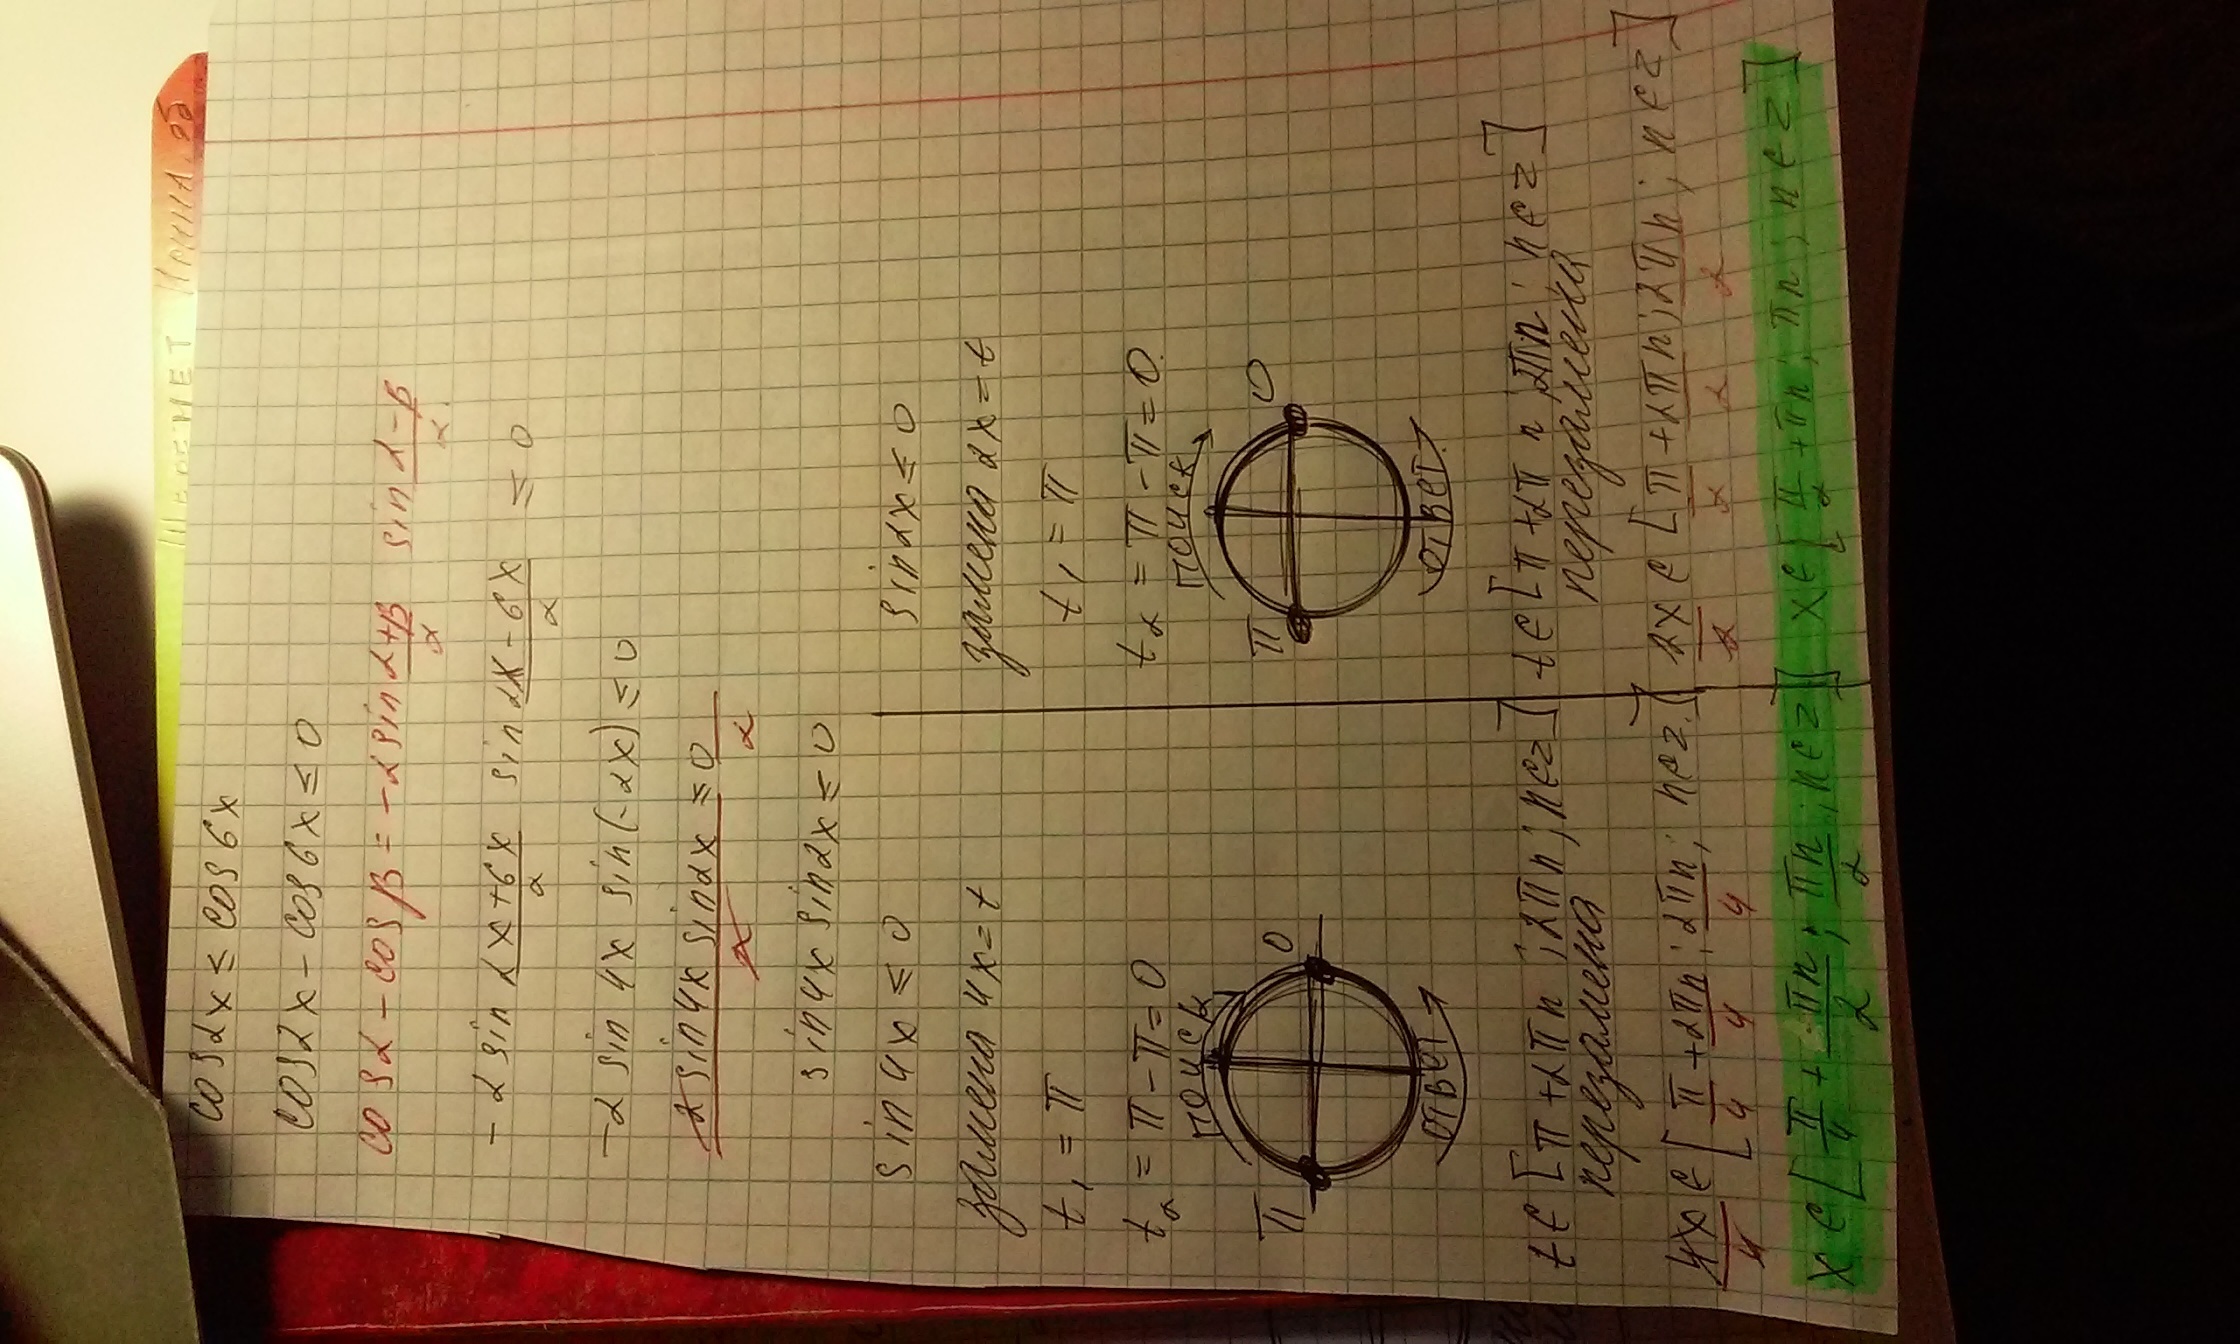 Ирина.яб
cos2x ≤ cos6x
cos2x - cos6x ≤ 0
cosα - cosβ = -2sin (α+β)/2 sin (α-β)/2.
-2sin (2x+6x)/2 sin (2x-6x)/2 ≤ 0
-2sin4x sin(-2x) ≤ 0
2sin4x sin2x ≤ 0
2 2
sin4x sin2x ≤ 0
sin4x ≤ 0
замена 4x=t
t₁ = π
t₂ = π-π=0
поиск
π 0
ответ
t ∈ [π+2πn; 2πn; n∈z]
перезамена
4x/4 ∈ [π/4 + 2πn/4; 2πn/4; n∈z.]
x ∈ [π/4 + πn/2; πn/2; n∈z]
sin2x ≤ 0
замена 2x=t
t₁ = π
t₂ = π-π=0.
поиск
π 0
ответ.
t ∈ [π+2πn 2πn; n∈z]
перезамена
2x/2 ∈ [π/2+2πn/2; 2πn/2; n∈z]
x ∈ [π/2+πn; πn; n∈z]